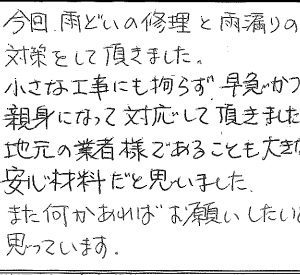 今回、雨どいの修理と雨漏りの
対策をして頂きました。
小さな工事にも拘らず、早急かつ
親身になって対応して頂きました
地元の業者様であることも大き
安心材料だと思いました。
また何かあればお願いしたい
思っています。